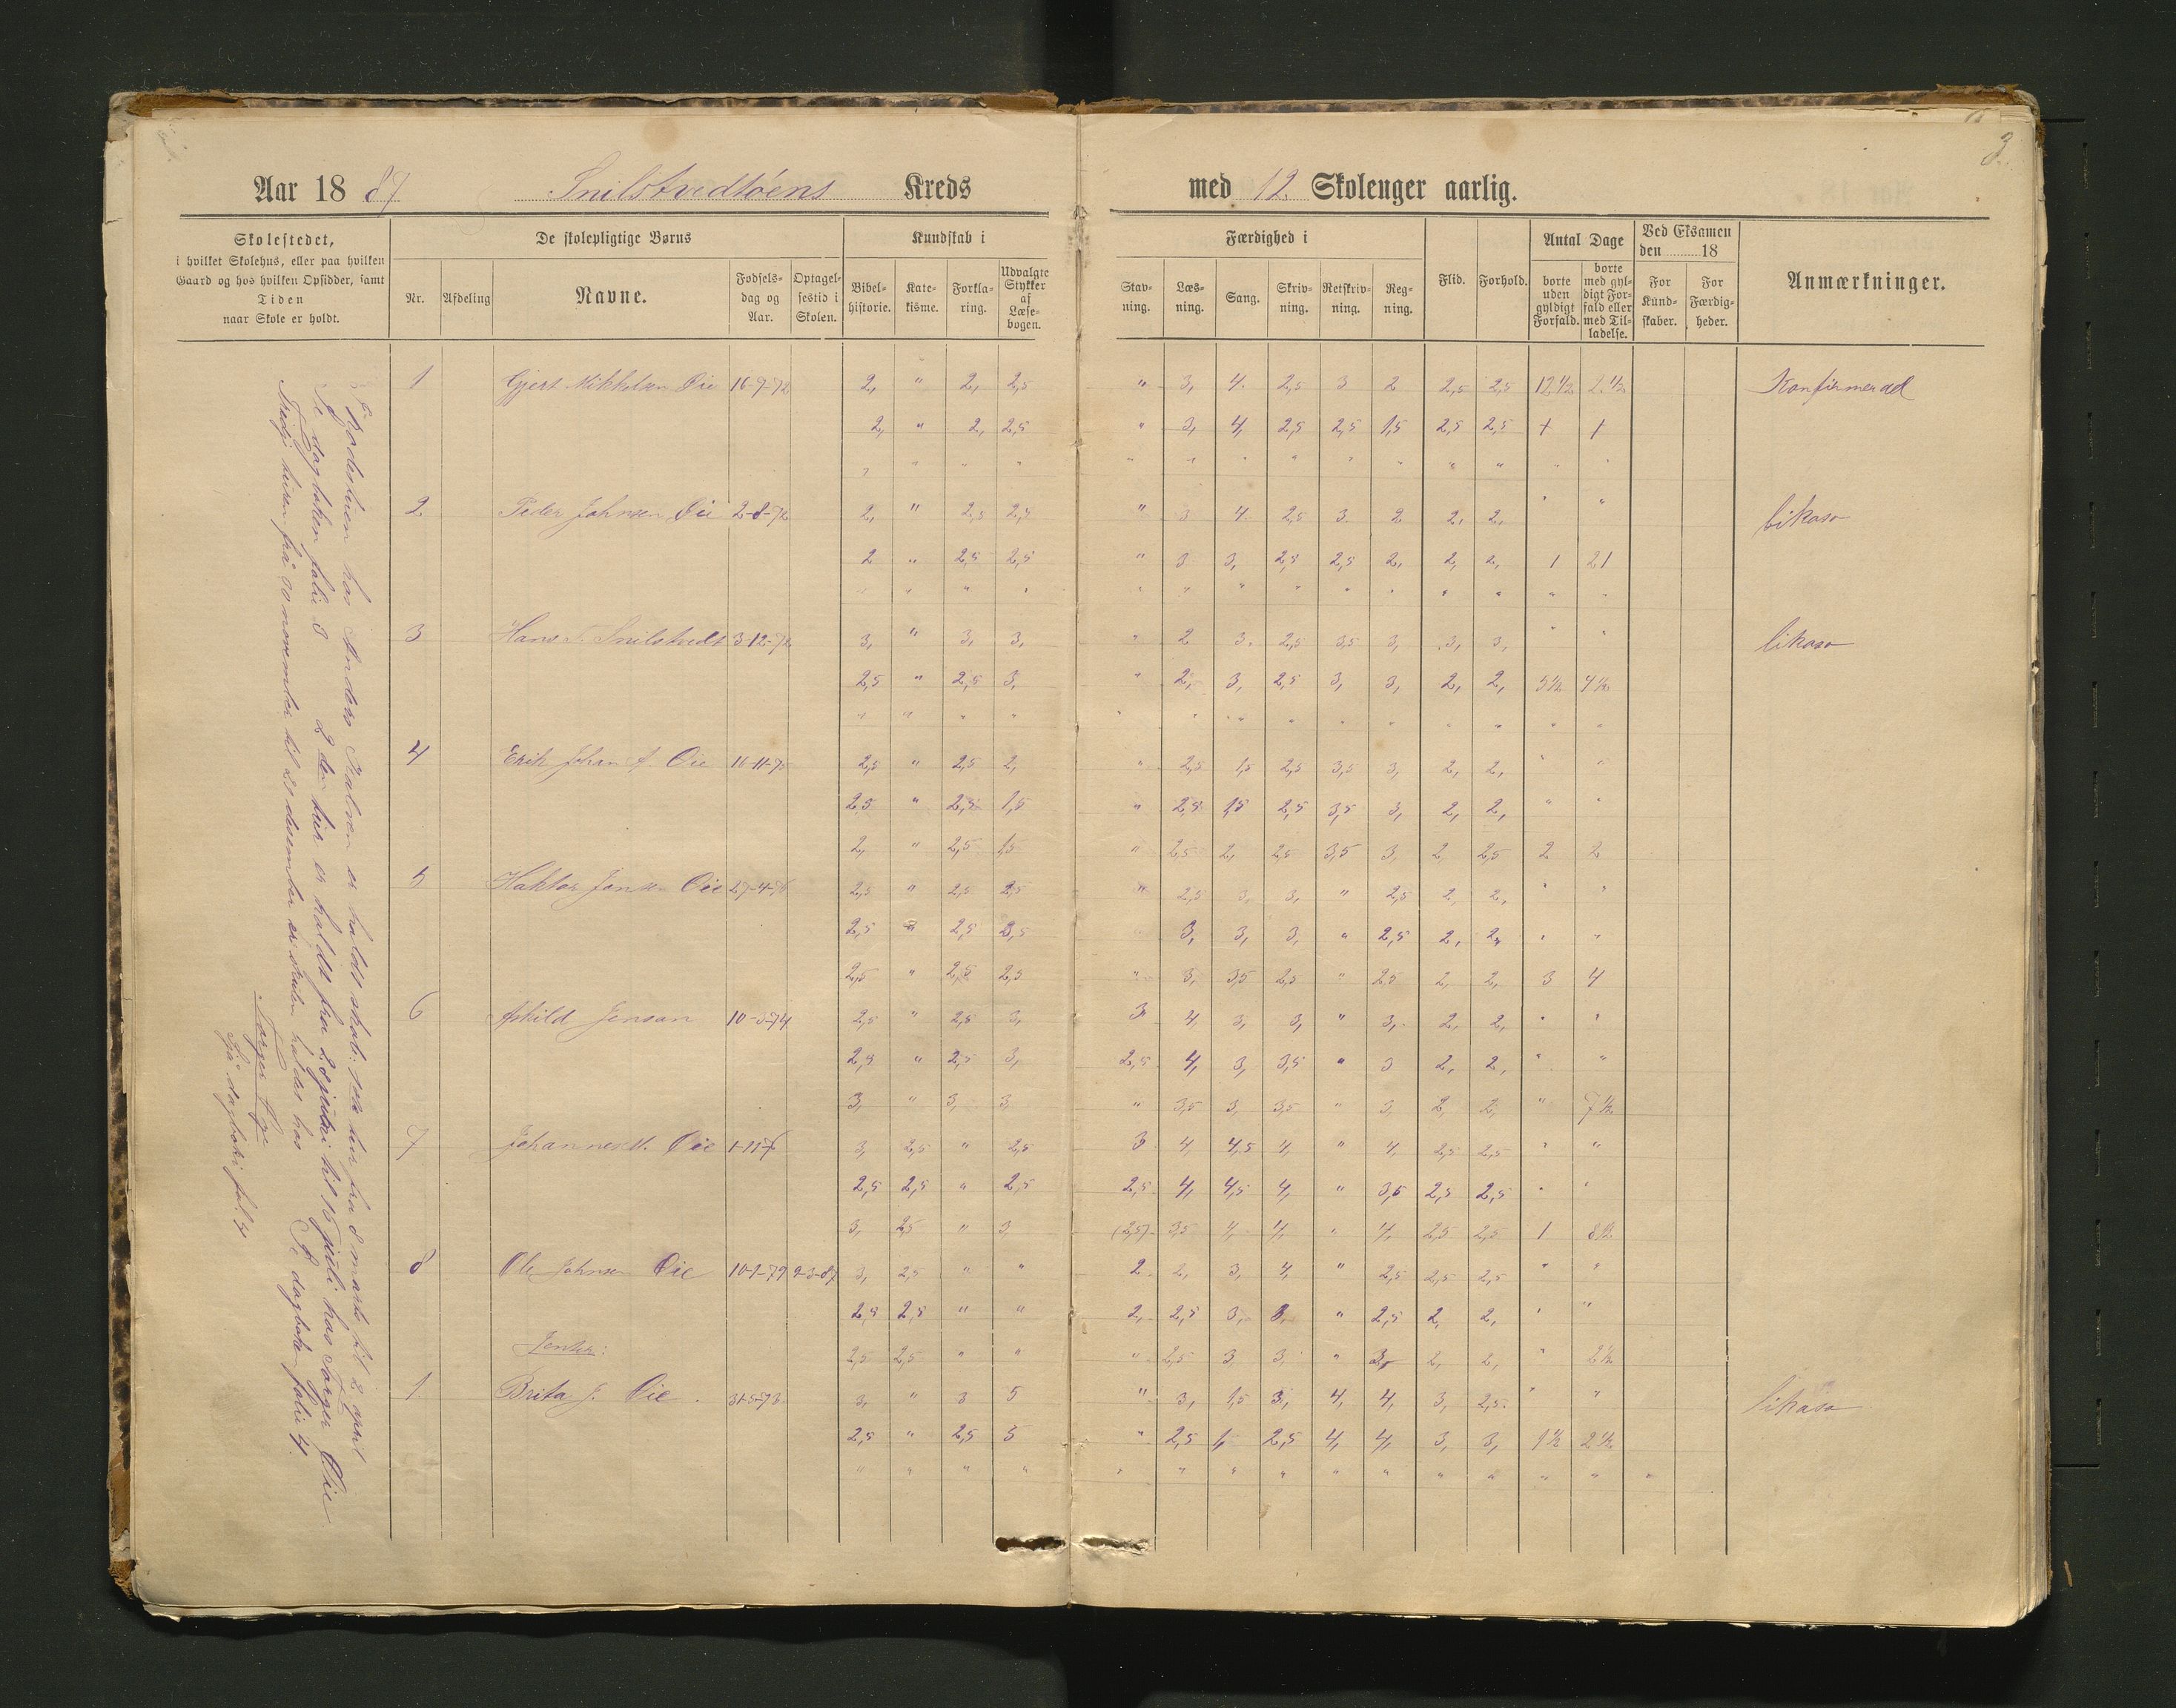 3.
Aar 1887 Snilstvedtøens Kreds med 12 Skolenger aarlig.
Skolestedet,
i hvilket Skolehus, eller paa hvilken
Gaard og hos hvilken Opsidder, samt
Tiden
naar Skole er holdt.
De skolepligtige Børns
Nr. Afdeling Navne. Fødsels-dag og Aar. Optagel-sestid i Skolen.
Kundskab i
Bibel-historie. Kate-kisme. Forkla-ring. Udvalgte Stykker af Læse-bogen.
Færdighed i
Stav-ning. Læs-ning. Sang. Skriv-ning. Retskriv-ning. Reg-ning.
Flid. Forhold.
Antal Dage
borte uden gyldigt Forfald. borte med gyl-digt For-fald eller med Til-ladelse.
Ved Eksamen
den 18
For Kund-skaber. For Færdig-heder.
Anmærkninger.
1 Gjert Mikkelsen Øie 16-9-72 2, " 2, 2,5 " 3, 4. 2,5 3 2 2,5 2,5 12½ 2½ Konfirmerad
2, " 2, 2,5 " 3, 4, 2,5 2,5 1,5 2,5 2,5 + +
" " " " " " " " " " " " " "
2 Peder Johnsen Øie 2-8-72 2, " 2,5 2,5 " 3 4. 2,5 3. 2 2, 2, " " likaso
2 " 2,5 2,5 " 3 3, 2,5 2,5 2, 2, 2, 1 21
" " " " " " " " " " " " " "
3 Hans Snilstvedt 3-12-72 3, " 3, 3, " 2 3. 2,5 3,5 3, 3, 3, " " likaso
2,5 " 2,5 3, " 2, 3, 2,5 3, 3, 2, 2, 5½ 4½
" " " " " " " " " " " " " "
4 Erik Johan A. Øie 2,5 " 2,5 2, " 2,5 1,5 2,5 3,5 3, 2, 2, " "
2,5 " 2,5 1,5 " 2,5 1,5 2,5 3,5 3, 2, 2, " "
2, " 2,5 1,5 " 2,5 2, 2,5 3,5 3, 2, 2,5 2 2
5 Øie 2,5 " 2,5 2,5 " 2,5 3, 3, " 2,5 2, 2, " "
2,5 " 2,5 2,5 3, 3, 3, " 2,5 2, 2, " "
2,5 " 2,5 2,5 " 3, 3,5 2,5 " 2,5 2, 2, 3 4
6 Askild Jensen 2,5 " 2,5 3, 3 4, 3, 3, " 3, 2, 2, " "
2,5 " 2,5 3, 2,5 4, 3, 3,5 " 3 2, 2, " "
3, " 3, 3, " 3,5 3, 3,5 " 3, 2, 2, " 7½
7 Johannes M. Øie 3, 2,5 " 2,5 3 4, 4,5 4, " 4, 2,5 2,5 " "
2,5 2,5 " 2,5 2,5 4, 4,5 4, " 3,5 2,5 2,5 " "
3, 2,5 " 3 (2,5) 3,5 4, 4, " 4, 2,5 2,5 1 8½
8 Ole Johnsen Øie 10-1-79 9-3-87 3, 2,5 " " 2 2, 3, 4, " 2,5 2,5 2,5 " "
2,5 2,5 " " 2, 2,5 3, 3, " 2,5 2, 2, " "
Jenter:
2,5 2,5 " " " 2,5 3, 3, " 3, 2, 2, " 2½
1 Brita J. Øie 31-5-73 3, " 3 5 " 3, 1,5 3, 4, 4, 3, 2,5 " " likaso
2,5 " 2,5 5 " 2,5 1, 2,5 4, 4, 3, 3, 1½ 2½
" " " " " " " " " " " " " " "
hos Anders er haldt skole: fra 8 marts til 2 april
Se dagboken folio 3 2den tur er haldt fra 28 juni til 15 juli hos Torger Øie
Tredje turen frå 30 november til desember er skulen halden hos Se dagboken folio 4.
Torger Øye
Sjå dagboki fol. 4